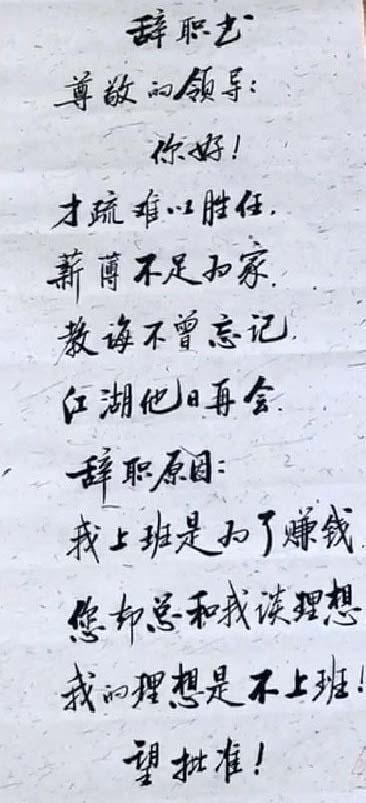 辞职书
尊敬的领导：
你好！
才疏难以胜任.
薪薄不足为家.
教诲不曾忘记.
江湖他日再会.
辞职原因：
我上班是为了赚钱
您却总和我谈理想
我的理想是不上班！
望批准！